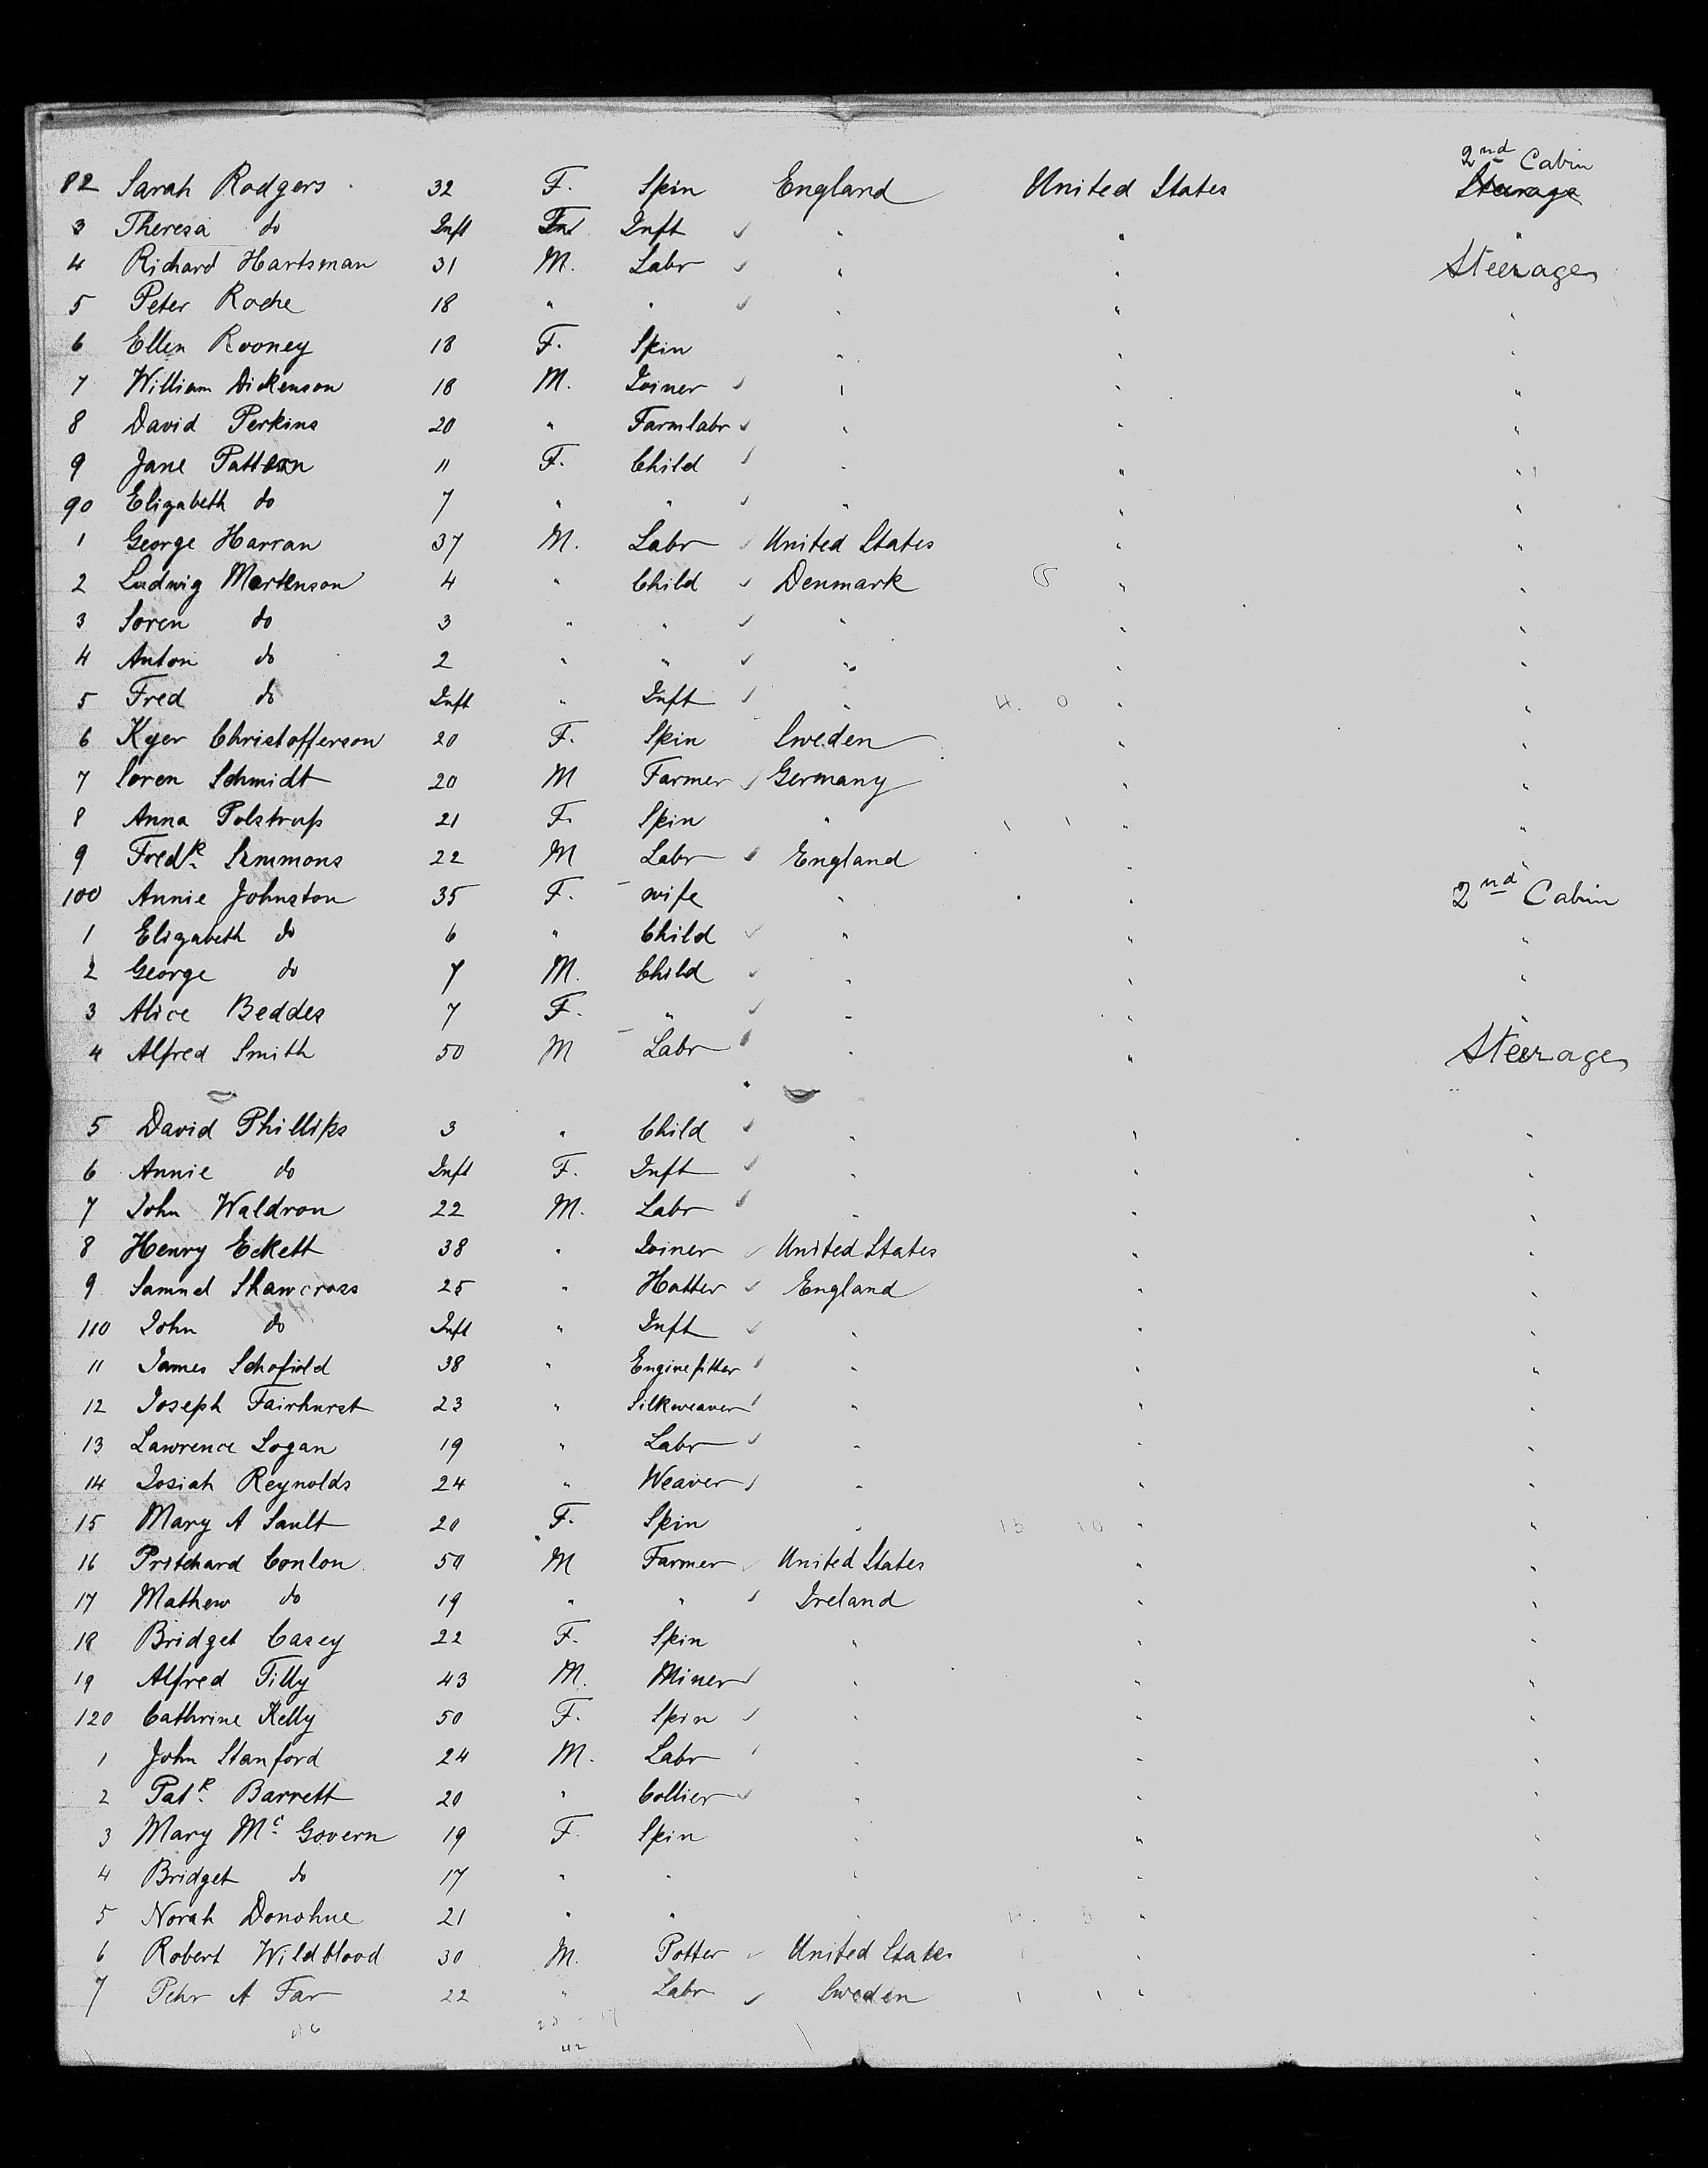 2nd Cabin
82 Sarah Rodgers 32 F. Spin England United States Steerage
3 Theresa do Inft Inft ✓ " " "
4 Richard Hartsman 31 M. Labr ✓ " " Steerage
5 Peter Roche 18 " " ✓ " " "
6 Ellen Rooney 18 F. Spin " " "
7 William Dickenson 18 M. Joiner ✓ " " "
8 David Perkins 20 " Farmlabr ✓ " " "
9 Jane Patteson 11 F. Child ✓ " " "
90 Elizabeth do 7 " " ✓ " " "
1 George Harran 37 M. Labr ✓ United States " "
2 Ludwig Mortenson 4 " Child ✓ Denmark " "
3 Soren do 3 " " ✓ " " "
4 Anton do 2 " " ✓ " " "
5 Fred do Inft " Inft ✓ " 4. 0 " "
6 Kjer Christofferson 20 F. Spin Sweden " "
7 Soren Schmidt 20 M Farmer ✓ Germany " "
8 Anna Polstrup 21 F. Spin " 1 1 " "
9 Fredk Simmons 22 M Labr ✓ England " "
100 Annie Johnston 35 F. wife " " 2nd Cabin
1 Elizabeth do 6 " Child ✓ " " "
2 George do 7 M. Child ✓ " " "
3 Alice Beddes 7 F. " ✓ " " "
4 Alfred Smith 50 M Labr ✓ " " Steerage
5 David Phillips 3 " Child ✓ " " "
6 Annie do Inft F. Inft ✓ " " "
7 John Waldron 22 M. Labr ✓ " " "
8 Henry Eckett 38 " Joiner ✓ United States " "
9 Samuel Shawcross 25 " Hatter ✓ England " "
110 John do Inft " Inft ✓ " " "
11 James Schofield 38 " Enginefitter ✓ " " "
12 Joseph Fairhurst 23 " Silkweaver ✓ " " "
13 Lawrence Logan 19 " Labr ✓ " " "
14 Josiah Reynolds 24 " Weaver ✓ " " "
15 Mary A Sault 20 F. Spin " 15 10 " "
16 Pritchard Conlon 50 M Farmer ✓ United States " "
17 Mathew do 19 " " ✓ Ireland " "
18 Bridget Casey 22 F. Spin " " "
19 Alfred Tilly 43 M. Miner ✓ " " "
120 Cathrine Kelly 50 F. Spin ✓ " " "
1 John Stanford 24 M. Labr ✓ " " "
2 Patk Barrett 20 " Collier ✓ " " "
3 Mary Mc Govern 19 F. Spin " " "
4 Bridget do 17 " " " " "
5 Norah Donohue 21 " " " " "
6 Robert Wildblood 30 M. Potter ✓ United States " "
7 Pehr A Far 22 " Labr ✓ Sweden 1 1 " "
42